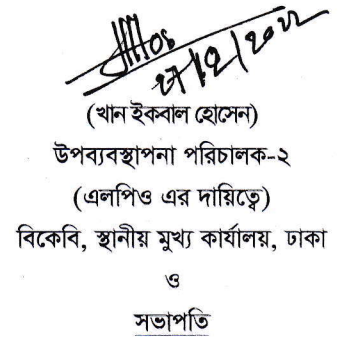 (খান ইকবাল হোসেন)
উপব্যবস্থাপনা পরিচালক-২
(এলপিও এর দায়িত্বে)
বিকেবি, স্থানীয় মুখ্য কার্যালয়, ঢাকা
ও
সভাপতি